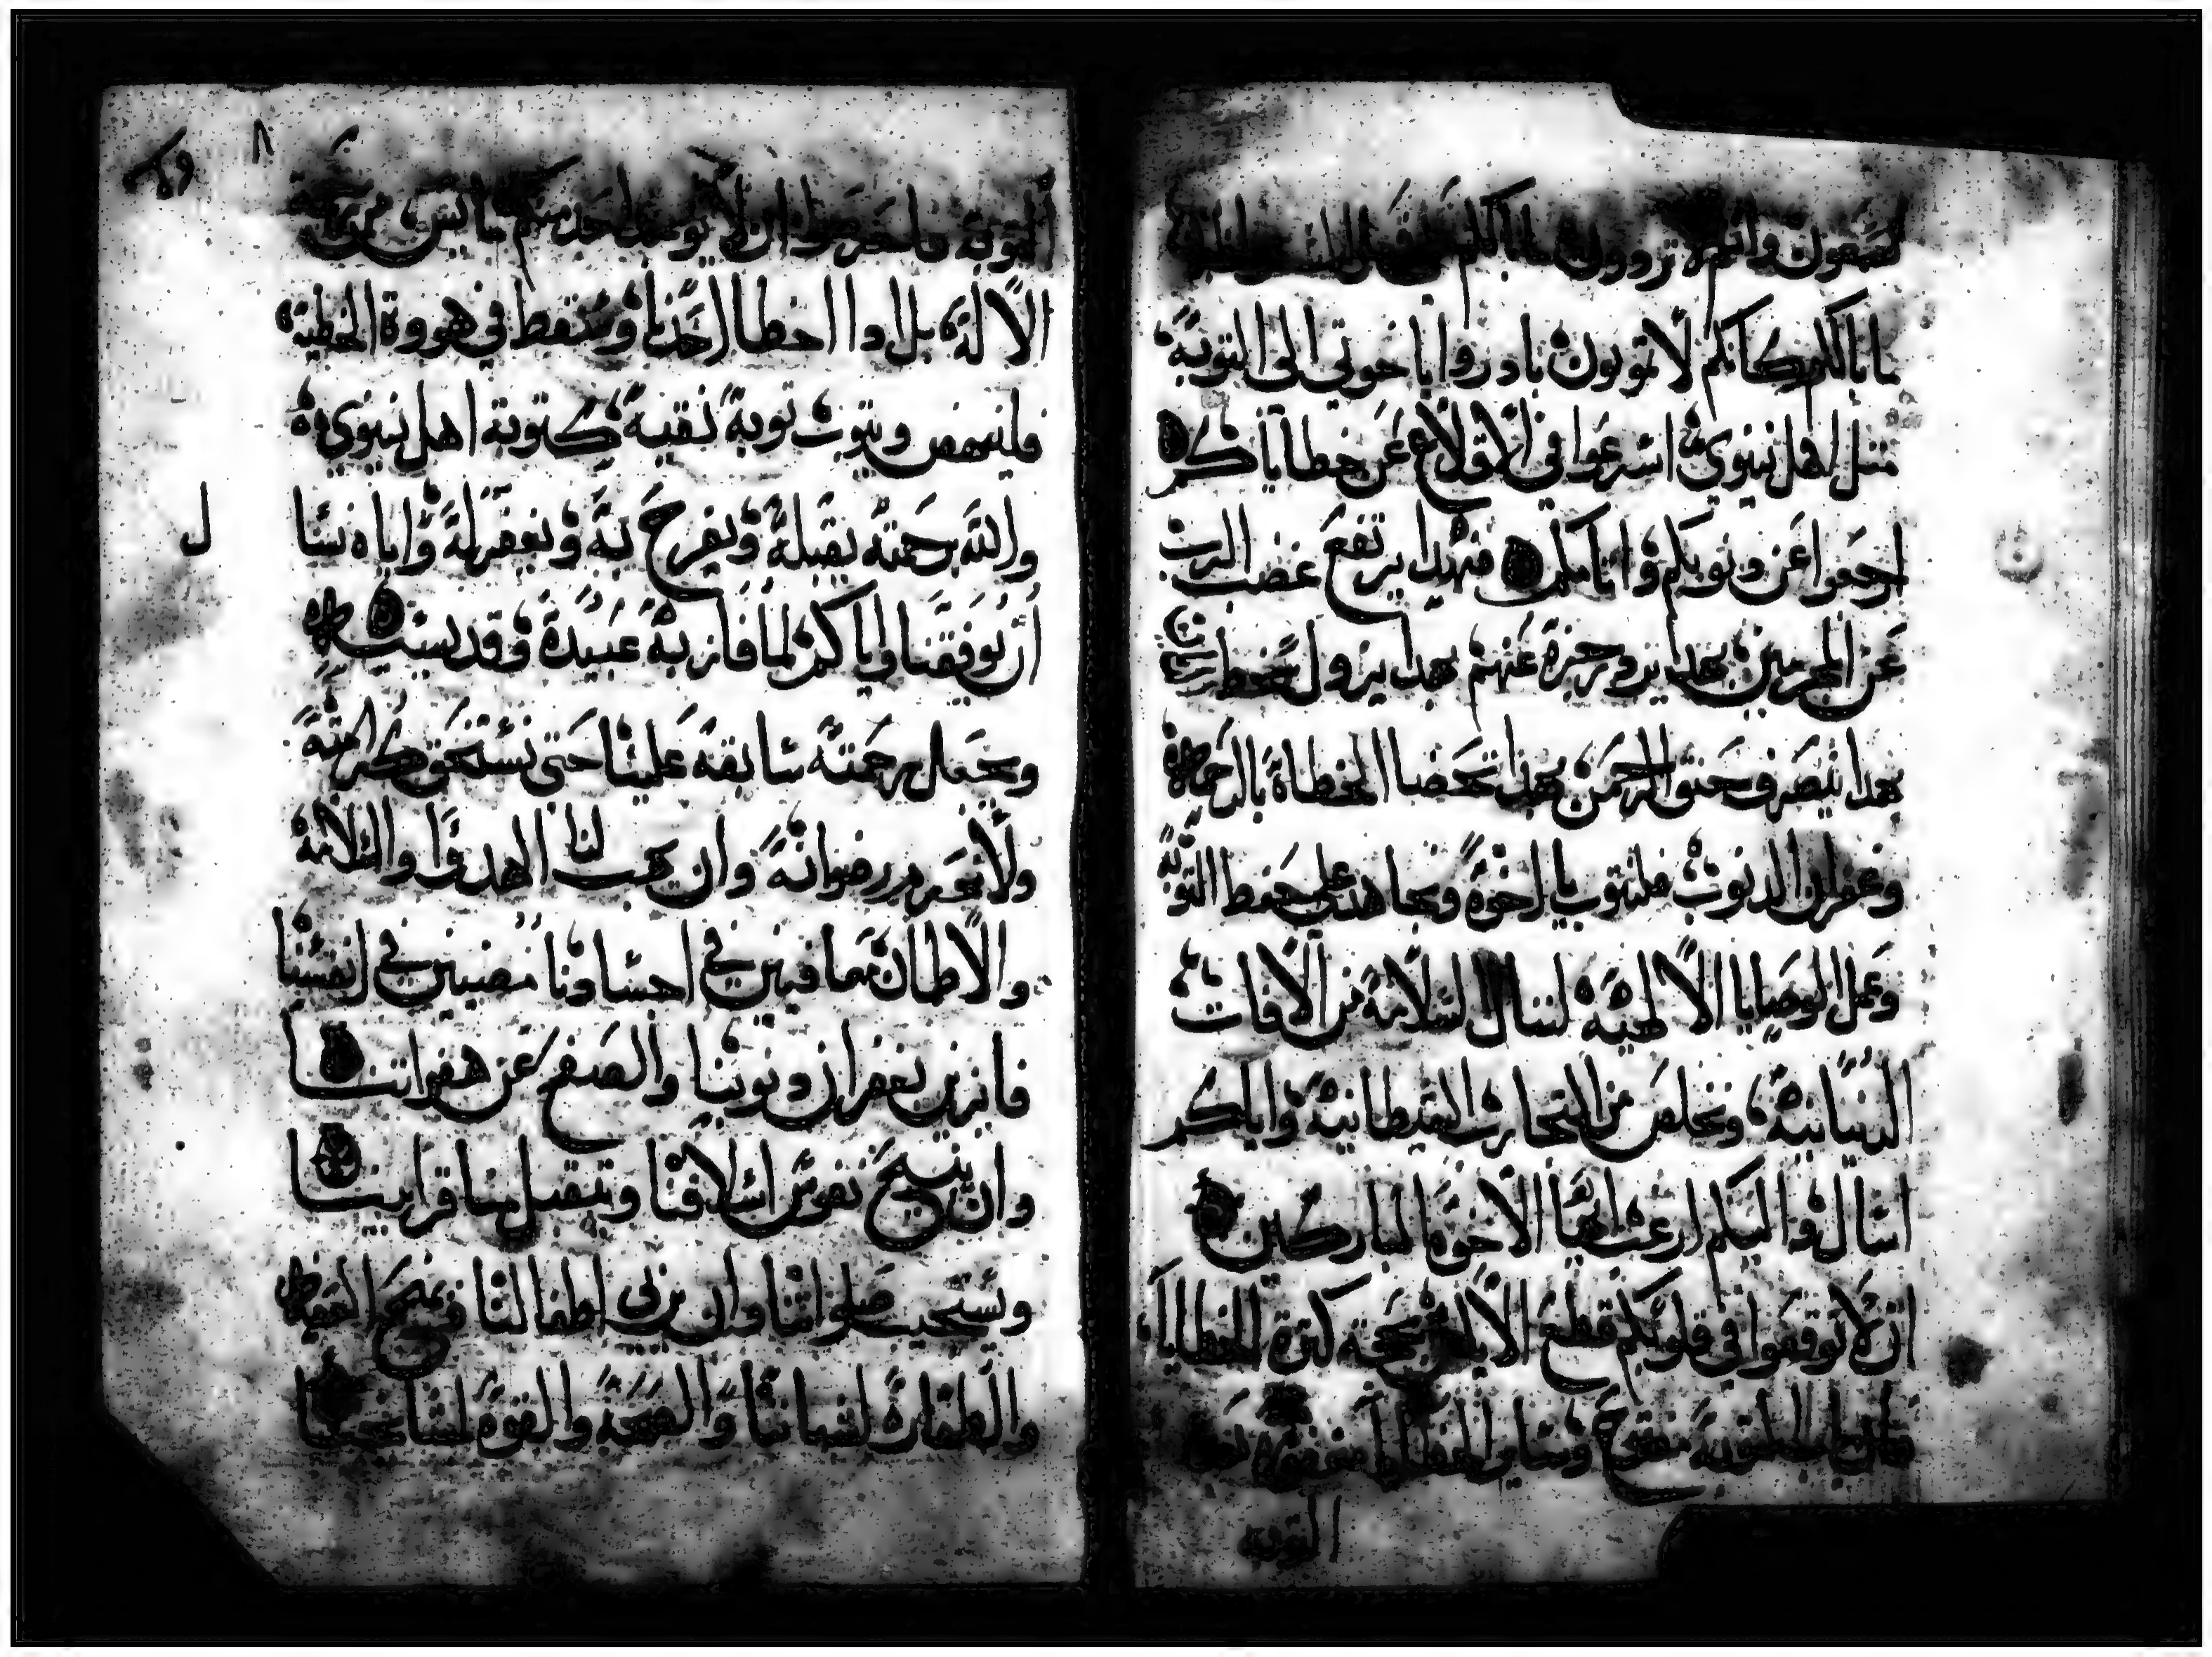 تسمعون وانتم ترووون ما بالكم
ما بالكم كانكم لا تتوبون بادروا يا خوتي الى التوبة
مثل اهل نينوى اسرعوا في الاقلاع عن خطاياكم
ارجعوا عن دنوبكم واثامكم فبهدا يرتفع غضب الرب
عن المجرمين بهدا يرد رجزه عنهم بهدا يزول سخطه
بهدا ينصرف حنق الرحمن بهدا تحضا الخطاة بالرحمة
وغفران الدنوب فلنتوب يا اخوة ونجاهد على حفظ التوبة
وعمل الوصايا الالهية لننال السلامة من الافات
النفسانية ونخلص من التجارب الشيطانية واياكم
اسال واليكم ارغب ايها الاخوة المباركين
ان لا توقفوا في قلوبكم قطع الاياس بحجة كترة الخطايا
فان باب التوبة مفتوح وساير الخطايا مغفورة
التوبه
٨
التوبة فاحرصوا ان لا يوجد احد منكم ما يس من رحمة
الالة بل ادا اخطا احدنا وسقط في هووة الخطية
فلينهض ويتوب توبة نقية كتوبة اهل نينوى
والله برحمته يقبلة ويفرح بة ويغفر لة واياه نسا
ل
ان يوفقنا واياكم لما فاز به عبيدة وقديسيه
ويجعل رحمتة سابقة علينا حتى نستحق كرامته
ولا نحرم رضوانة وان يهب لنا الهدوا والسلامة
والاطمان معافيين في اجسادنا مضيين في انفسنا
فايزين بغفران دنوبنا والصفح عن هفواتنا
وان ينيح نفوس اسلافنا ويتقبل منا قرابيننا
ويستجيب صلواتنا وان يربي اطفالنا ويمنح العفة
والطهارة لشباننا والصحة والقوة لمشايخنا